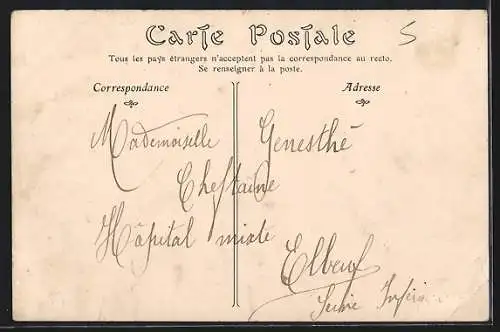 Carte Postale
5
Tous les pays étrangers n'acceptent pas la correspondance au recto.
Se renseigner à la poste.
Correspondance
Adresse
Mademoiselle Genesthé
Cheftaine
Hôpital mixte
Elbeuf
Seine Infér